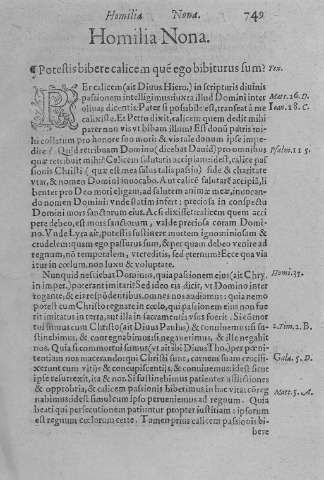 Homilia Nona. 749
Homilia Nona.
¶Potestis bibere calicem quē ego bibiturus sum? Ten.
PEr calicem (ait Diuus Hiero.) in scripturis diuinis
passionem intelligimus iuxta illud Domini inter Mat. 26. D.
oliuas dicentis: Pater si possibile est, transeat à me Ioan. 18. C.
calix iste. Et Petro dixit, calicem quem dedit mihi
pater non vis vt bibam illum? Est donū patris mi-
hi collatum pro honore suo morti: & vis tale donum ipse impe-
dire? Quid retribuam Domino (dicebat Dauid) pro omnibus Psalm. 115.
quæ retribuit mihi? Calicem salutaris accipiam: id est, calicē passi
onis Christi (quæ est mea salutatis passio) fide & charitate
vtar, & nomen Domini inuocabo. Aut calicē salutarē accipiā, li
benter pro Deo mori eligam, ad salutem animæ meæ, inuocan-
do nomen Domini: vnde statim infert: preciosa in conspectu
Domini mors sanctorum eius. Ac si dixisset: calicem quem acci
pere debeo, est mors sanctorum, valde preciosa coram Domi-
no. Vnde Lyra ait, potestis sustinere mortem ignominiosam &
crudelem: quam ego passurus sum, & per quam debeo venire ad
regnum, nō temporalem, vt creditis, sed æternum? Ecce qua via
itur in cœlum, non luxu & voluptate.
Nunquid nesciebat Dominus, quia passionem eius (ait Chry. Homi. 35.
in imper.) poterant imitari? Sed ideo eis dicit, vt Domino inter
rogante, & eis respōdentibus, omnes nos audiamus: quia nemo
potest cum Christo regnare in cœlo, qui passionem eius non fue
rit imitatus in terra,
tui sumus cum Christo (ait Diuus Paulus) & conuiuemus: si su- 2. Tim. 2. B.
stinebimus, & conregnabimus: si negauerimus, & ille negabit
nos. Quia si commortui sumus (vt ait ibi Diuus Tho.) per pœni-
tentiam nos macerando: qui Christi sunt, carnem suam crucifi- Gala. 5. D.
xerunt cum vitijs & concupiscentijs, & conuiuemus: id est sicut
ipse resurrexit, ita & nos. Si sustinebimus patienter afflictiones
& opprobria, & calicem passionis bibetimus in hac vita: cōreg Matt. 5. A.
nabimus: id est simul cum ipso perueniemus ad regnum. Quia
beati qui persecutionem patiuntur propter iustitiam: ipsorum
est regnum cœlorum certe. Tamen prius calicem passionis bi-
bere